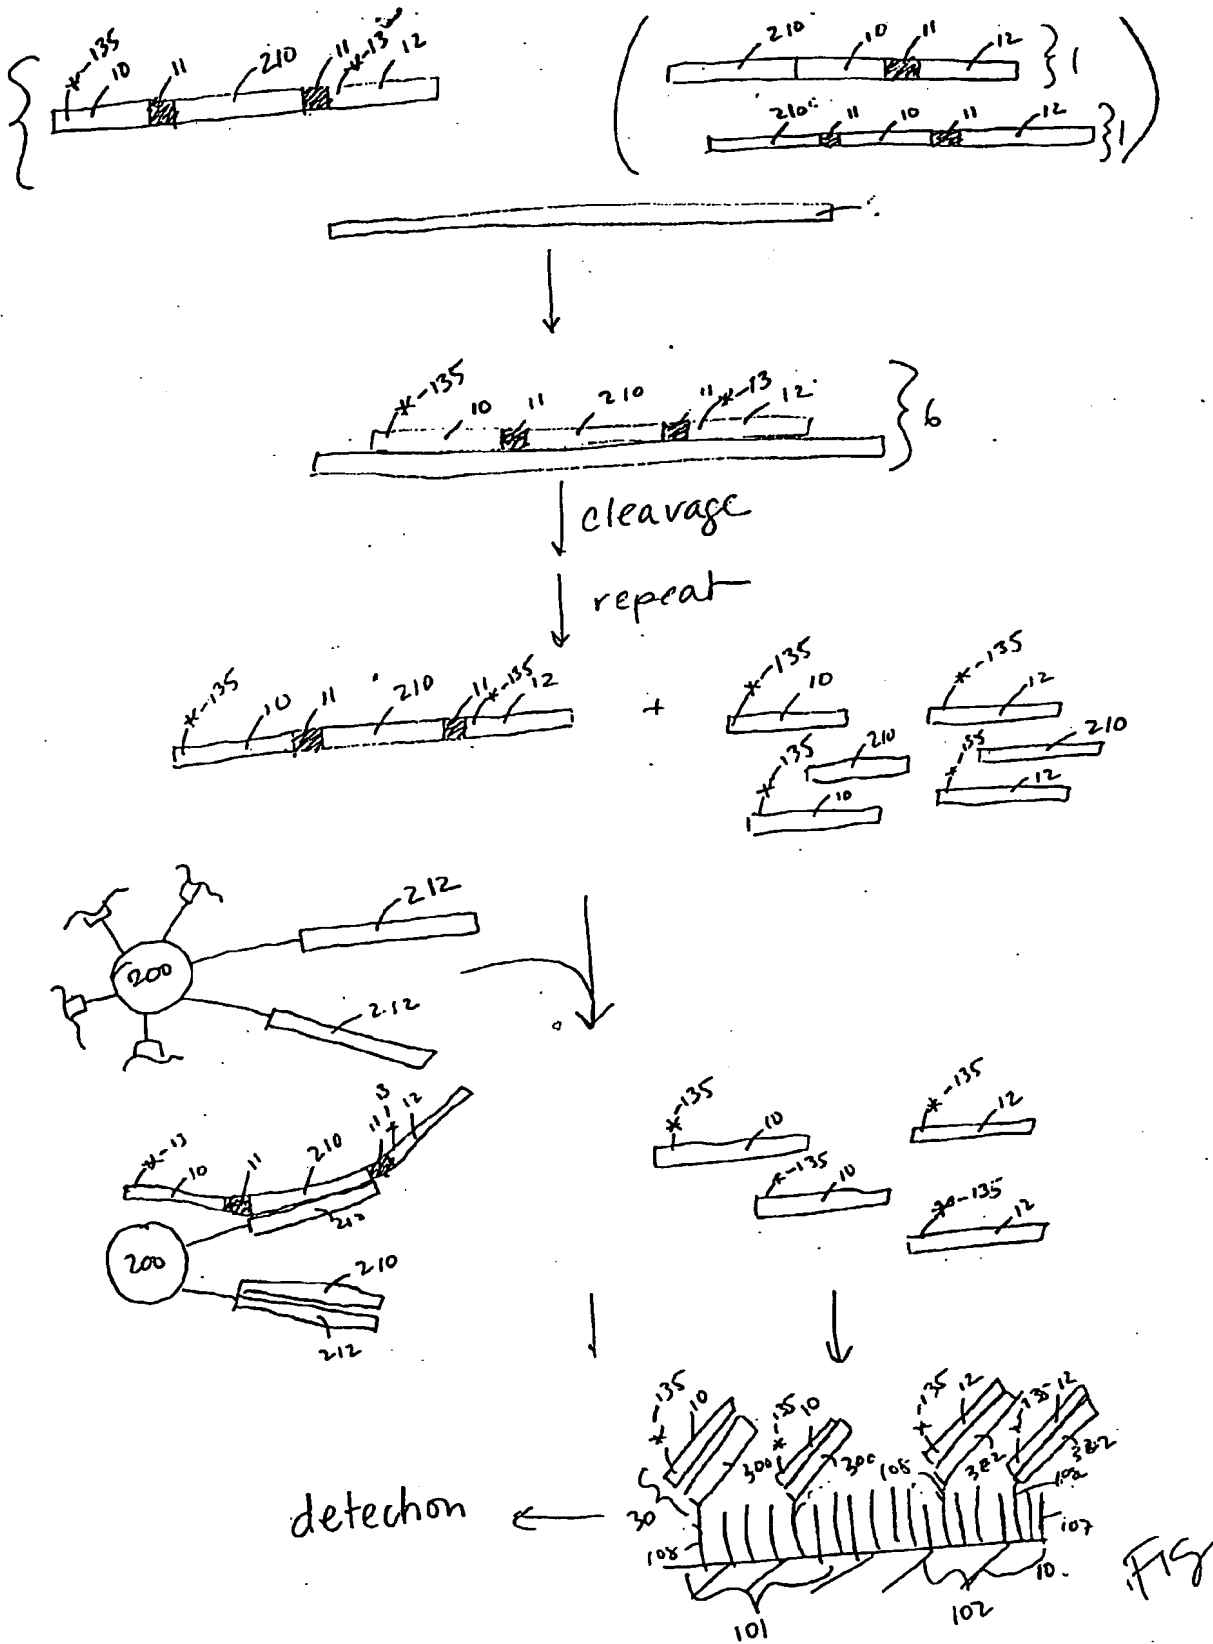 *-135 10 11 210 11 *-13 12
210 10 11 12 1
210 11 10 11 12 1
*-135 10 11 210 11 *-13 12 6
cleavage
repeat
*-135 10 11 210 11 *-135 12 + *-135 10 *-135 12
*-135 210 *-135 210
10 12
212
200
212
*-135 10 *-135 12
*-13 10 11 210 11 13 12
*-135 10 *-135 12
200 212
210
212
*-135 10 *-135 10 *-135 12 *-135 12
300 300 108 322 322
detection ← 30
108 107
101 102 10.
FIG